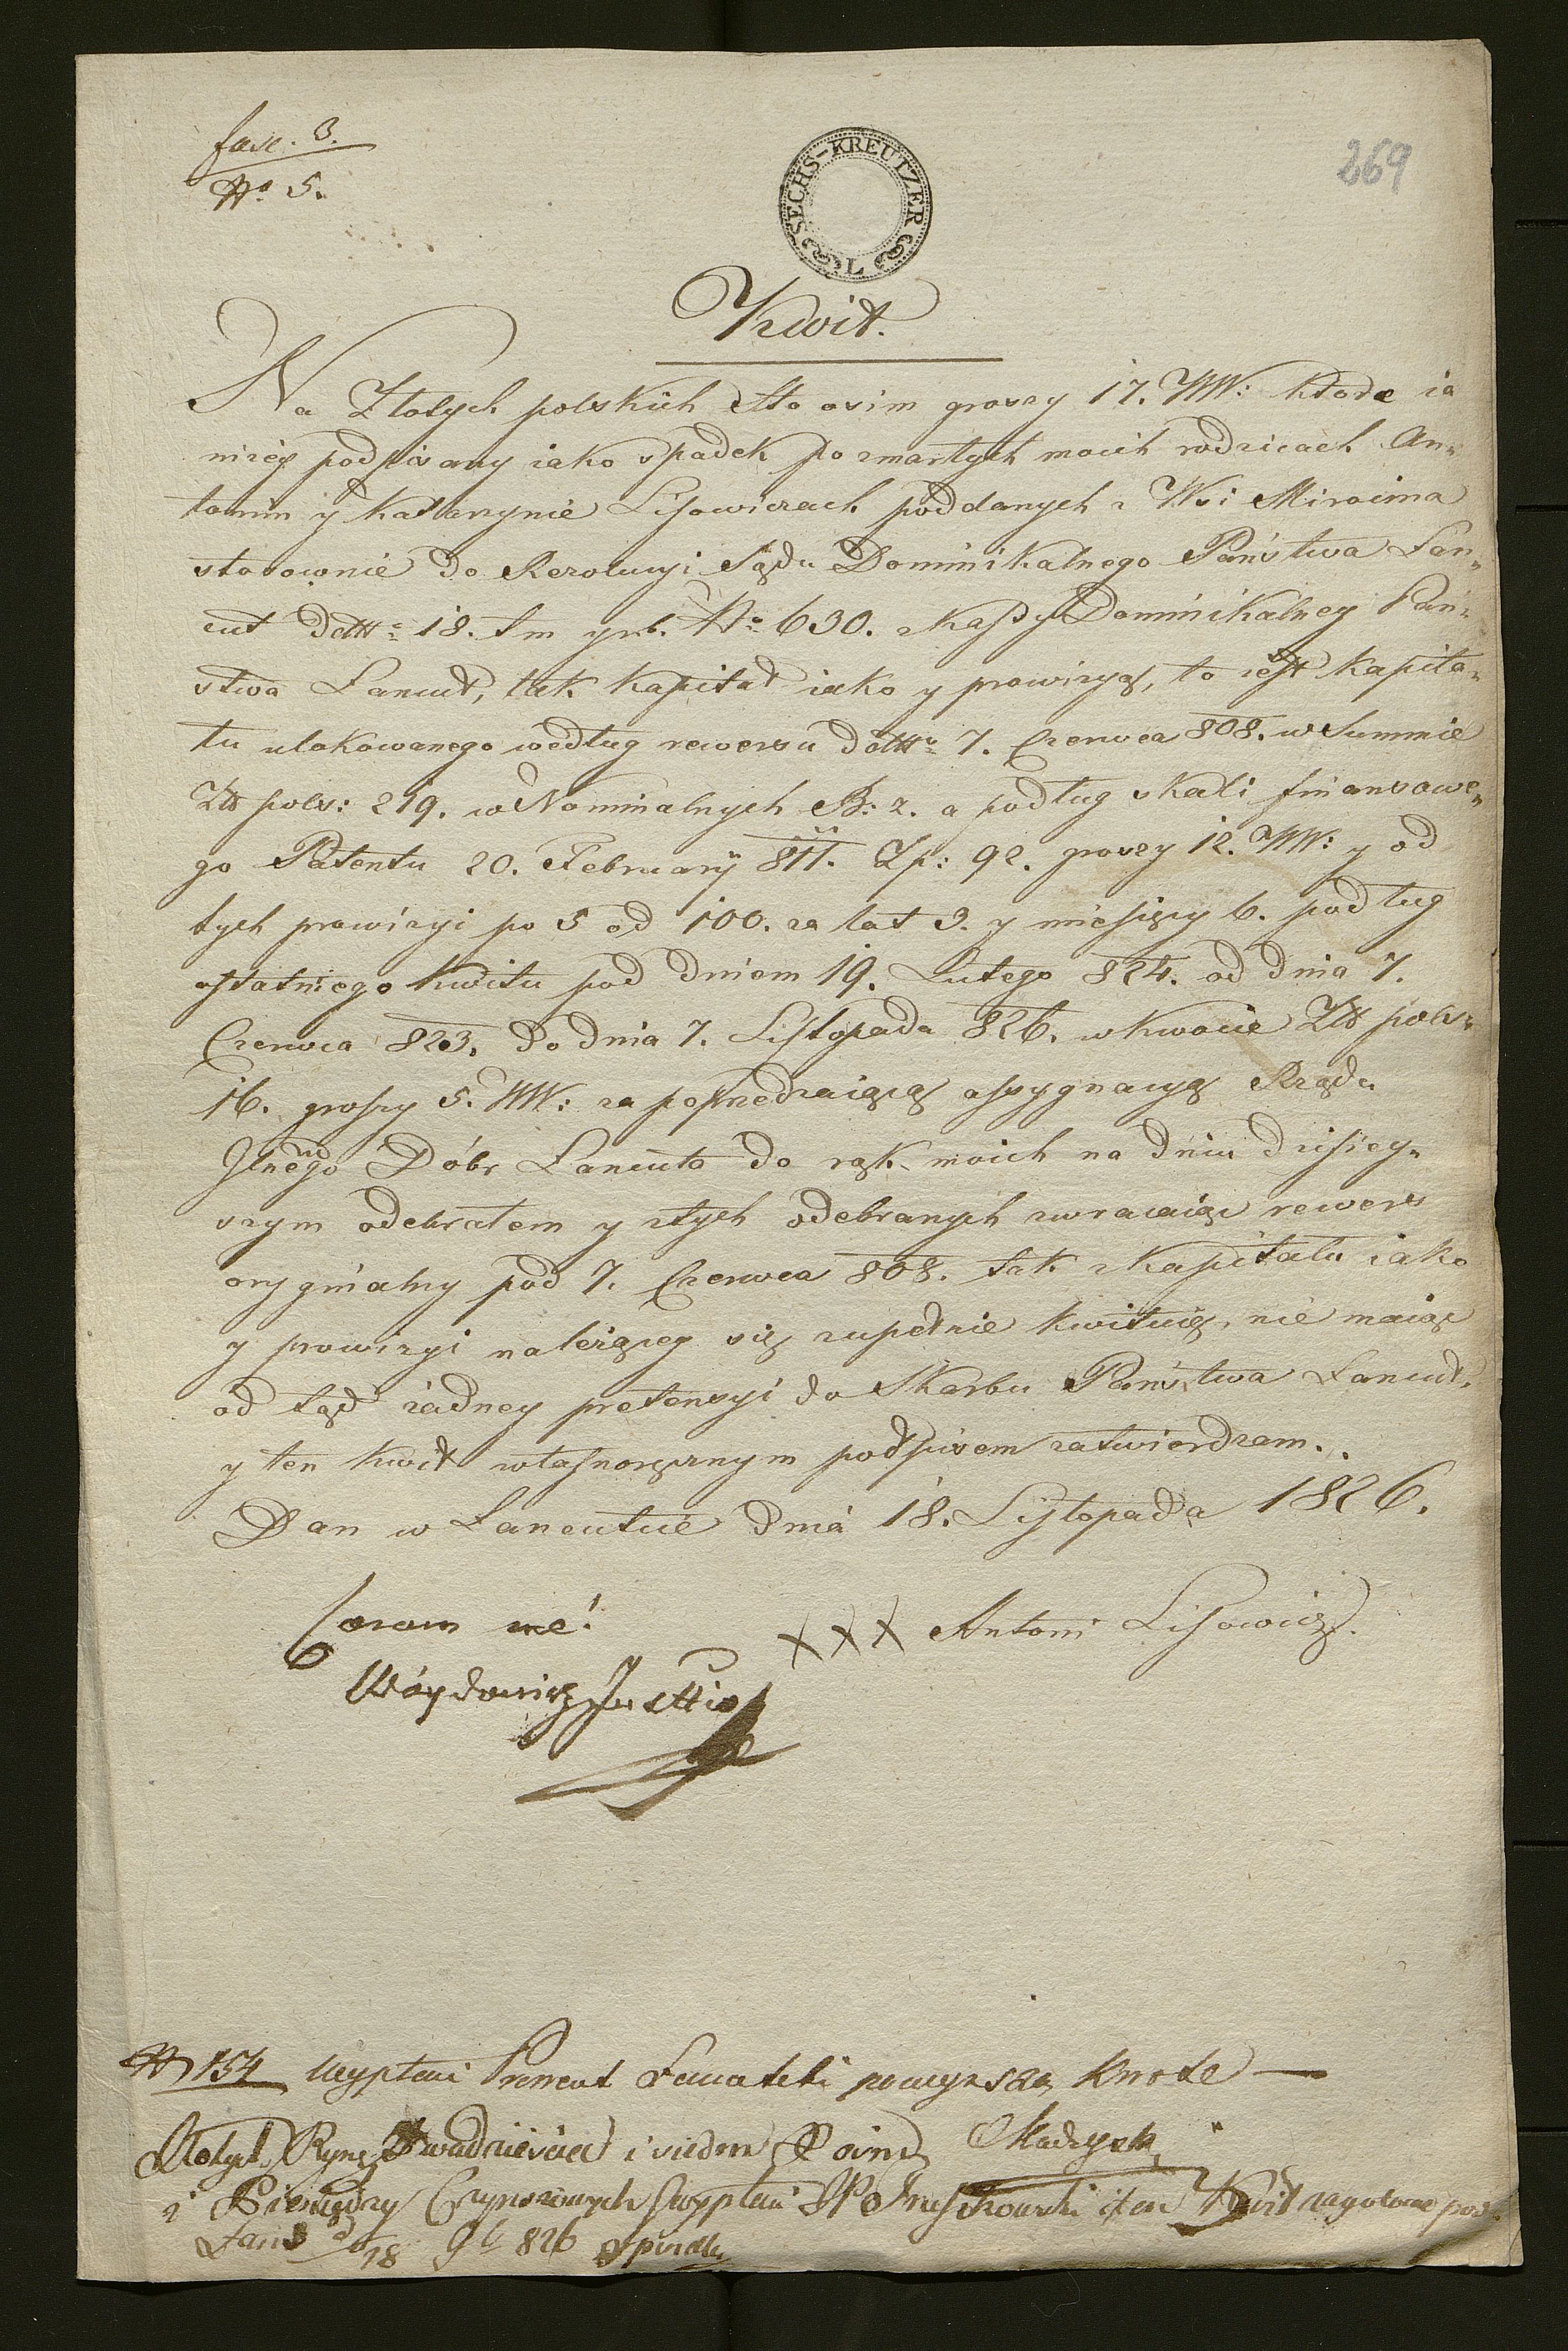 fasc. 3.
No 5.
269
SECHS-KREUTZER
L
Kwit.
Na Złotych polskich Sto osim groszy 17. WW: które ia
niżey podpisany iako spadek po zmarłych moich rodzicach An„
tonim y Katarzynie Lisowiczach poddanych z Wsi Mirocina
stosownie do Rezolucyi Sądu Dominikalnego Państwa Łan„
cut ddtto 18. t m y r b. No 630. z Kassy Dominikalney Pań„
stwa Łancut, tak kapitał iako y prowizyą, to iest kapita„
łu ulokowanego według rewersu ddtto 7. Czerwca 808. w Summie
Złł pols: 219. w Nominalnych B: z. a podług skali finansowe„
go Patentu 20. February 811. Zp: 92. groszy 12. WW: y od
tych prowizyi po 5 od 100. za lat 3. y miesięcy 6. podług
ostatniego kwitu pod dniem 19. Lutego 824. od dnia 7.
Czerwca 823. do dnia 7. Listopada 826. w kwocie Złł pols„
16. groszy 5. WW: za poprzedzaiącą assygnacyą Rządu
Dóbr Łancuta do rąk moich na dniu dzisiey„
szym odebrałem y z tych odebranych zwracaiąc rewers
oryginalny pod 7. Czerwca 808. tak z Kapitału iako
y prowizyi należącey się zupełnie kwituię, nie maiąc
od tąd żadney pretensyi do Skarbu Państwa Łancut.
y ten kwit własnoręcznym podpisem zatwierdzam.
Dan w Łancucie dnia 18. Listopada 1826.
Coram me!
XXX Antoni Lisowicz.
No 154 Wypłaci powyższą kwotę —
Złotych Ryns Dwadzieścia i siedem
i Pieniędzy Czynszowych wypłaci ten Kwit
18 826